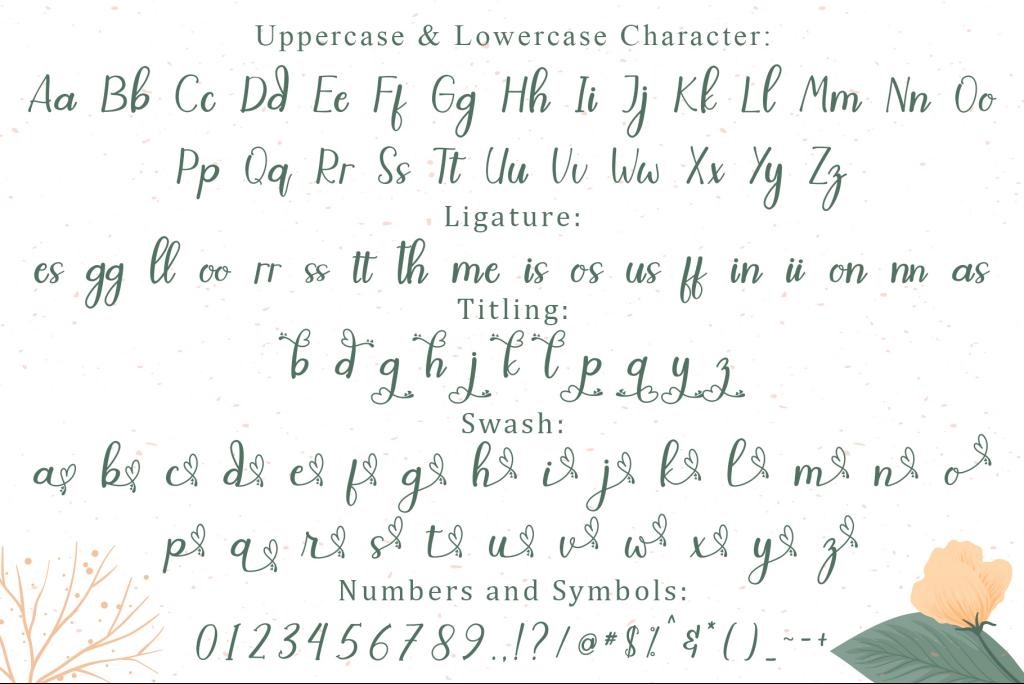 Uppercase & Lowercase Character:
Aa Bb Cc Dd Ee Ff Gg Hh Ii Jj Kk Ll Mm Nn Oo
Pp Qq Rr Ss Tt Uu Vv Ww Xx Yy Zz
Ligature:
es gg ll oo rr ss tt th me is os us ff in ii on nn as
Titling:
b d g h j k l p q y z
Swash:
a b c d e f g h i j k l m n o
p q r s t u v w x y z
Numbers and Symbols:
0 1 2 3 4 5 6 7 8 9 . , ! ? / @ # $ % ^ & * ( ) _ ~ - +